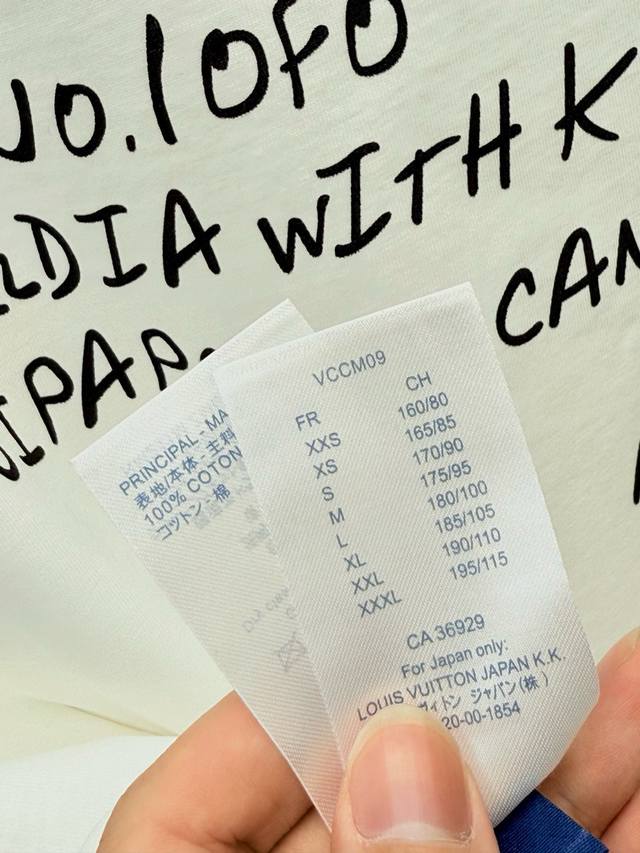 No.1 OFO
LDIA WITH K
CAN
IPAP
PRINCIPAL - MA
表地/本体 - 主料
100% COTON
コットン - 棉
VCCM09
FR CH
XXS 160/80
XS 165/85
S 170/90
M 175/95
L 180/100
XL 185/105
XXL 190/110
XXXL 195/115
CA 36929
For Japan only:
LOUIS VUITTON JAPAN K.K.
ヴィトン ジャパン(株)
20-00-1854